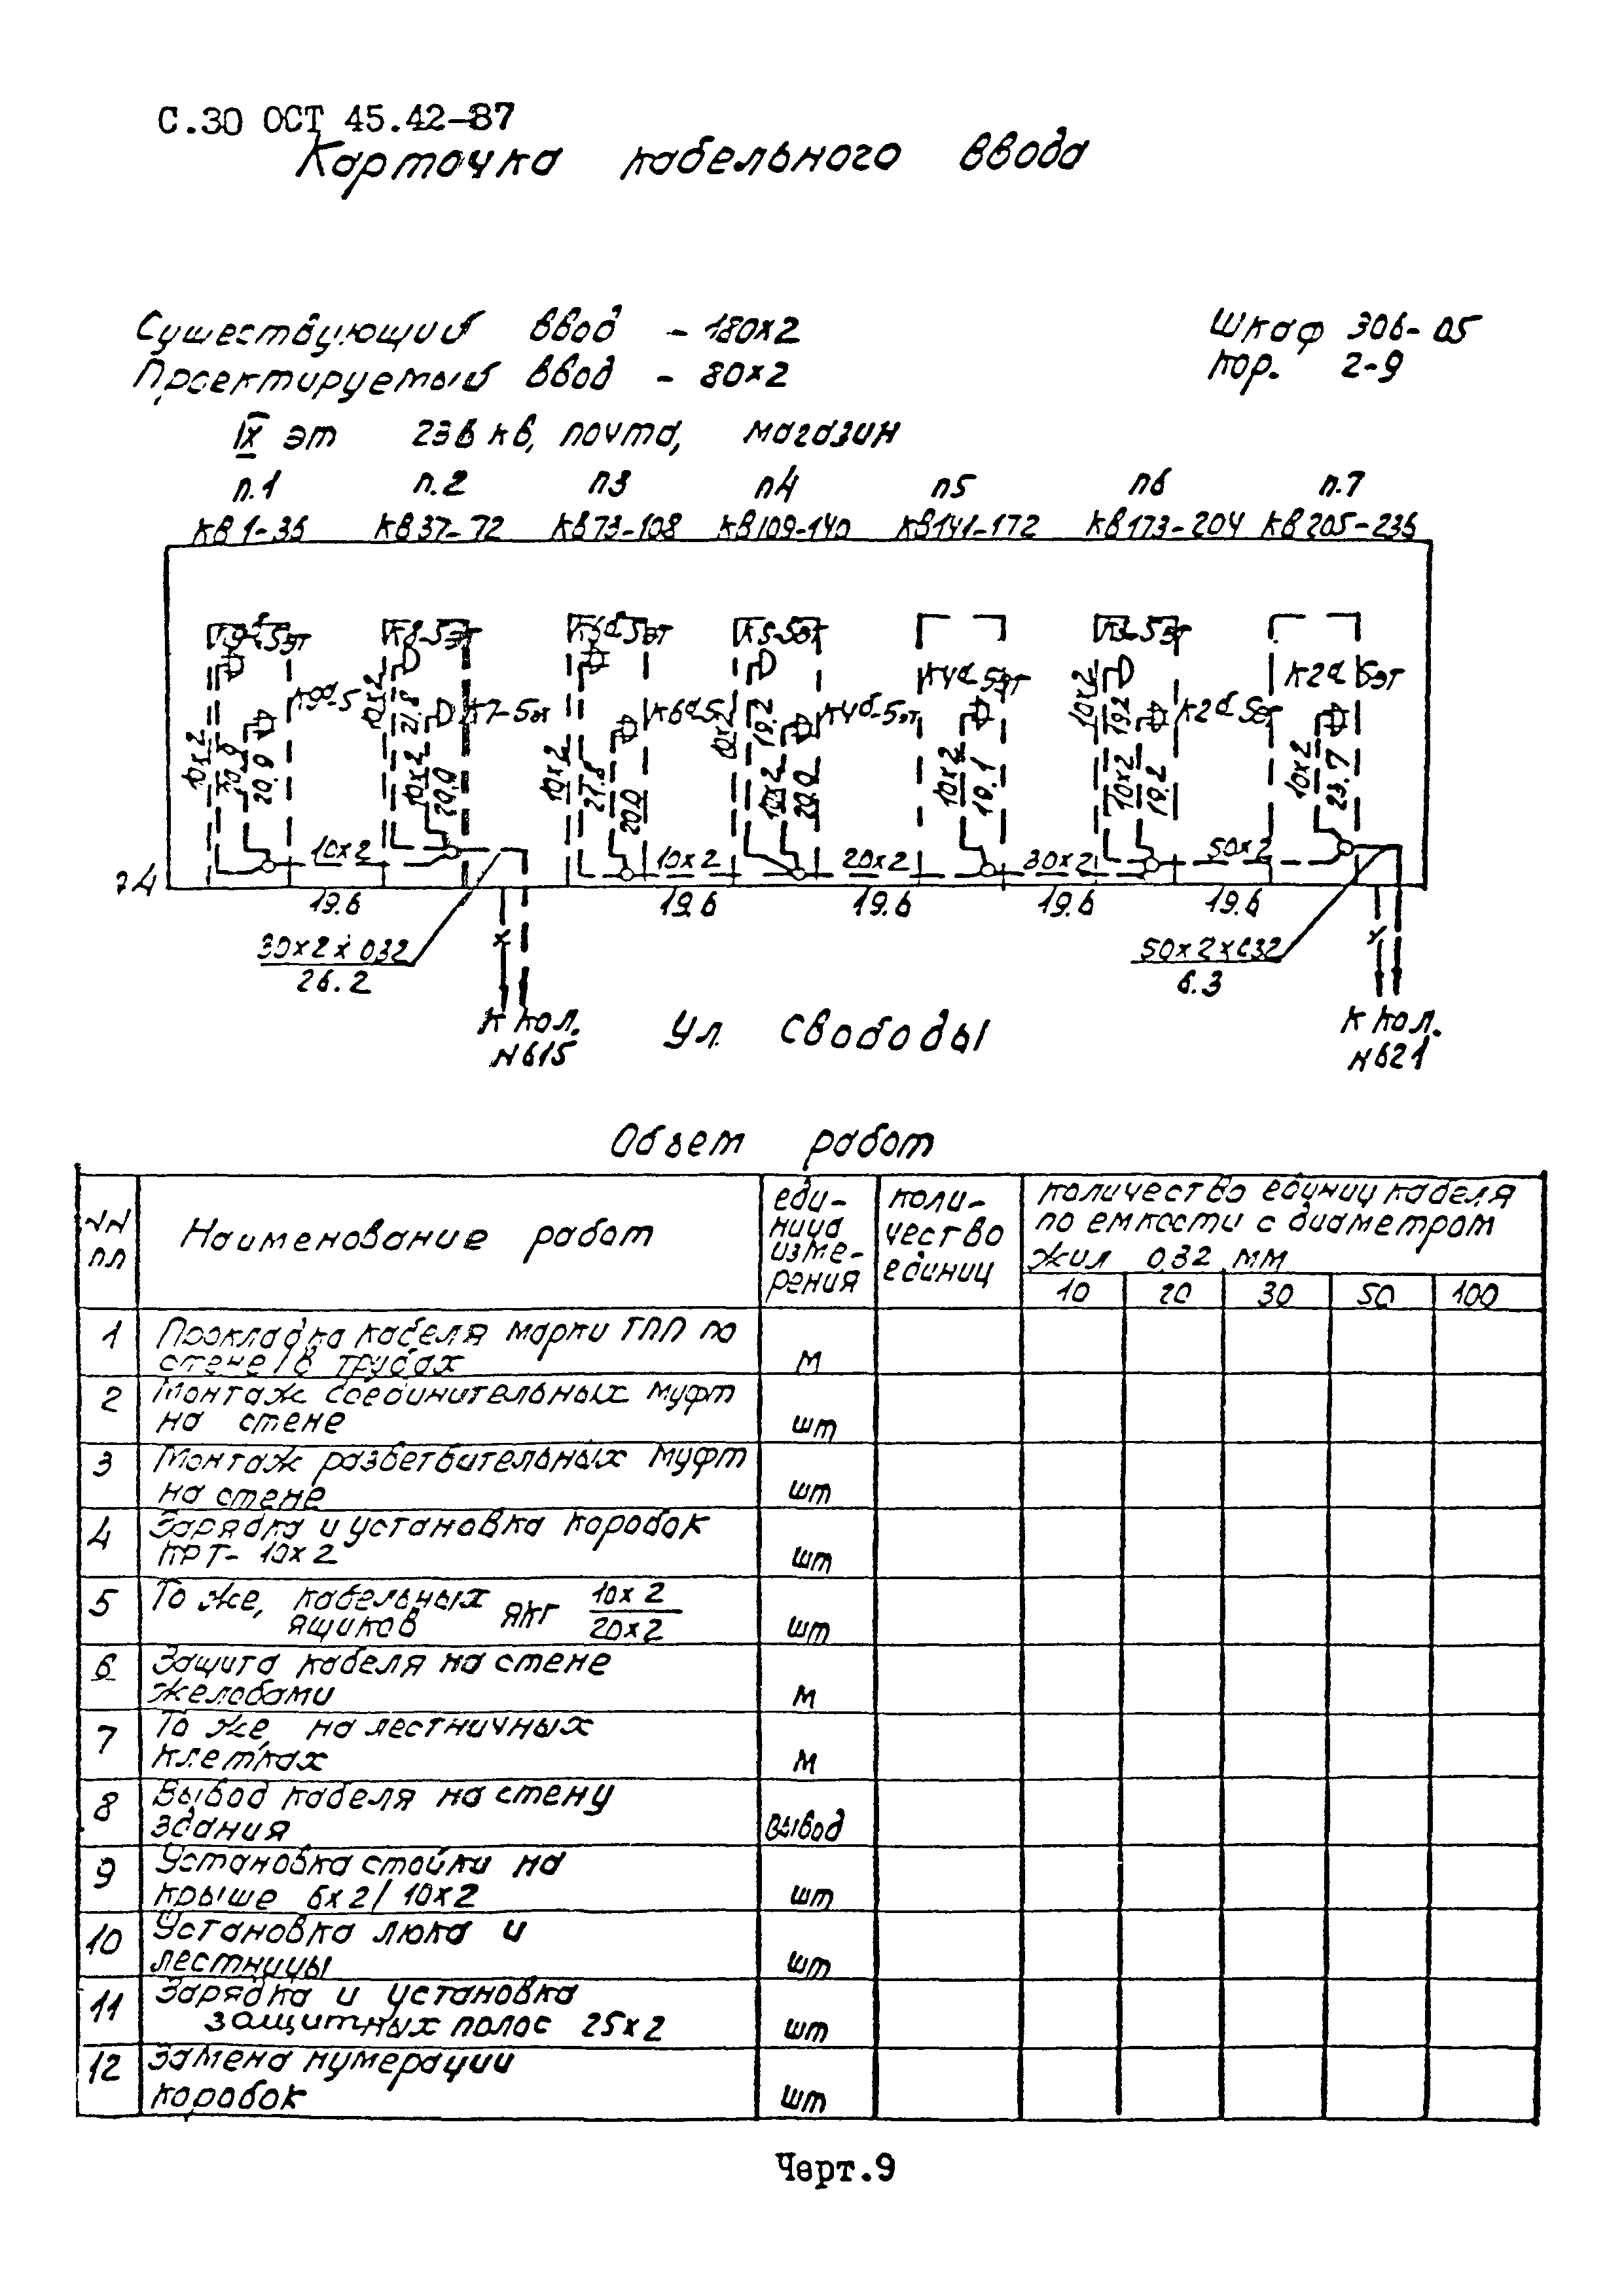 С.30 ОСТ 45.42-87
Карточка кабельного ввода
Существующий ввод - 180×2
Шкаф 306-05
Проектируемый ввод - 80×2
кор. 2-9
IX эт 236 кв, почта, магазин
п.1 п.2 п3 п4 п5 п6 п.7
кв 1-36 кв 37-72 кв 73-108 кв 109-140 кв 141-172 кв 173-204 кв 205-236
К8-5эт К5-5эт К3-5эт
К4а-5эт К2а 5эт
К9а-5 К7-5эт К6а-5 К4б-5эт
10×2 10×2 10×2 10×2 10×2
20.9 21.8 27.8 19.2 19.2
10×2 10×2 10×2 10×2 10×2
20.0 20.0 20.0 19.1 19.2 23.7
10×2 10×2 20×2 30×2 50×2
19.6 19.6 19.6 19.6 19.6
30×2×032
26.2
50×2×032
6.3
к кол.
N615
ул. Свободы
к кол.
N621
Объем работ
NN
пп
Наименование работ
еди-
ница
изме-
рения
коли-
чество
единиц
количество единиц кабеля
по емкости с диаметром
жил 0,32 мм
10 20 30 50 100
1 Прокладка кабеля марки ТПП по
стене/в трубах м
2 Монтаж соединительных муфт
на стене шт
3 Монтаж разветвительных муфт
на стене шт
4 Зарядка и установка коробок
КРТ- 10×2 шт
5 То же, кабельных
ящиков ЯКГ 10×2
20×2 шт
6 Защита кабеля на стене
желобами м
7 То же, на лестничных
клетках м
8 Вывод кабеля на стену
здания вывод
9 Установка стойки на
крыше 6×2/10×2 шт
10 Установка люка и
лестницы шт
11 Зарядка и установка
защитных полос 25×2 шт
12 Замена нумерации
коробок шт
Черт.9